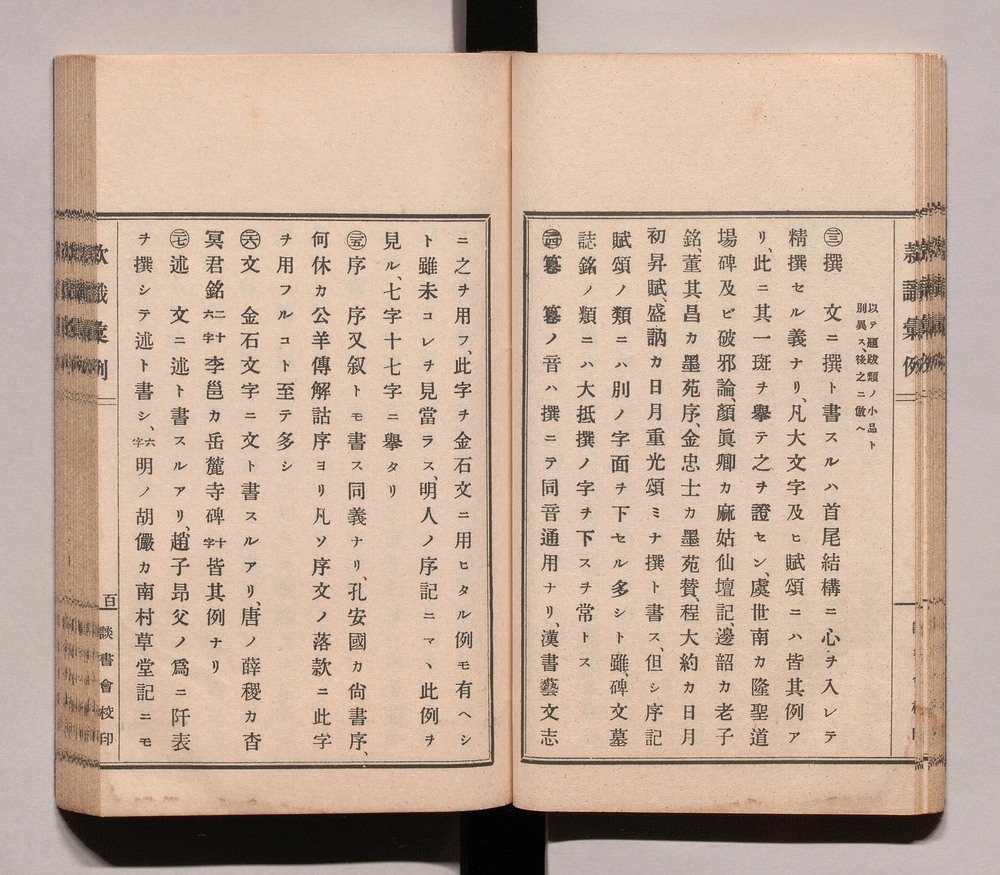 以テ題跋類ノ小品ト
別異ス、後之ニ倣ヘ
㊂撰　文ニ撰ト書スルハ首尾結構ニ心ヲ入レテ
精撰セル義ナリ、凡大文字及ヒ賦頌ニハ皆其例ア
リ、此ニ其一斑ヲ擧テ之ヲ證セン、虞世南カ隆聖道
場碑及ビ破邪論、顔眞卿カ麻姑仙壇記、邊韶カ老子
銘、董其昌カ墨苑序、金忠士カ墨苑賛、程大約カ日月
初昇賦、盛訥カ日月重光頌ミナ撰ト書ス、但シ序記
賦頌ノ類ニハ別ノ字面ヲ下セル多シト雖、碑文墓
誌銘ノ類ニハ大抵撰ノ字ヲ下スヲ常トス
㊃篹　篹ノ音ハ撰ニテ同音通用ナリ、漢書藝文志
ニ之ヲ用フ、此字ヲ金石文ニ用ヒタル例モ有ヘシ
ト雖未コレヲ見當ラス、明人ノ序記ニマヽ此例ヲ
見ル、七字十七字ニ擧タリ
㊄序　序又叙トモ書ス同義ナリ、孔安國カ尙書序、
何休カ公羊傳解詁序ヨリ凡ソ序文ノ落款ニ此字
ヲ用フルコト至テ多シ
㊅文　金石文字ニ文ト書スルアリ、唐ノ薛稷カ杳
冥君銘二十六字李邕カ岳麓寺碑十字皆其例ナリ
㊆述　文ニ述ト書スルアリ、趙子昂父ノ爲ニ阡表
ヲ撰シテ述ト書シ、六字明ノ胡儼カ南村草堂記ニモ
款識彙例
百
談書會校印